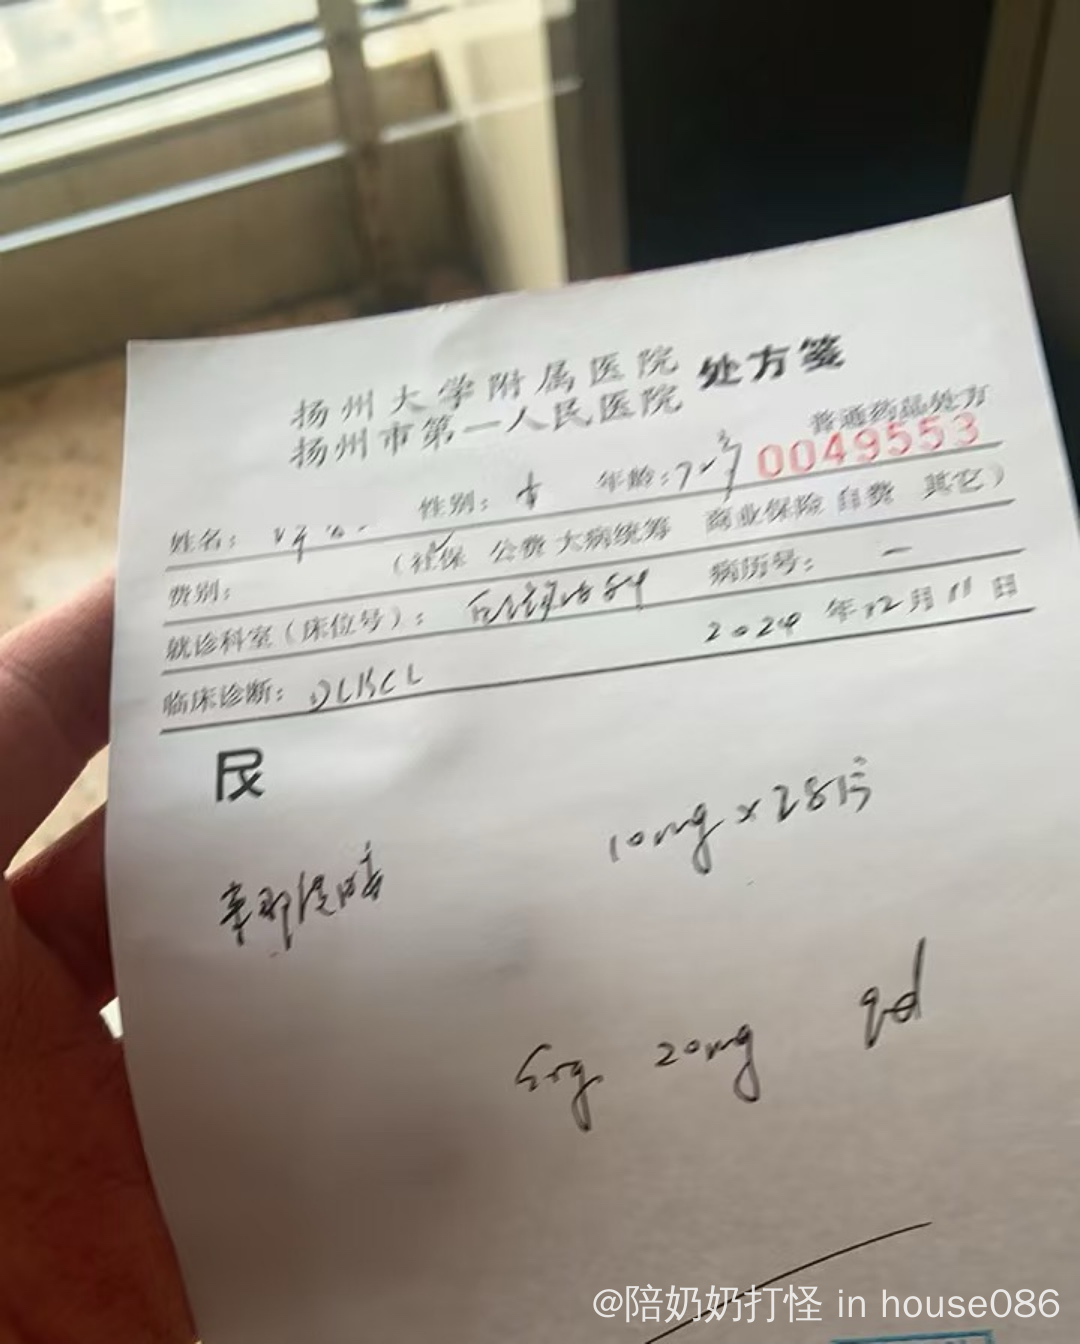 扬州大学附属医院
扬州市第一人民医院 处方笺
普通药品处方
0049553
姓名： 性别：女 年龄：72岁
费别： （社保 公费 大病统筹 商业保险 自费 其它）
就诊科室（床位号）： 病历号：一
临床诊断：DLBCL 2024年12月11日
R
10mg×28片
Sig 20mg qd
@陪奶奶打怪 in house086